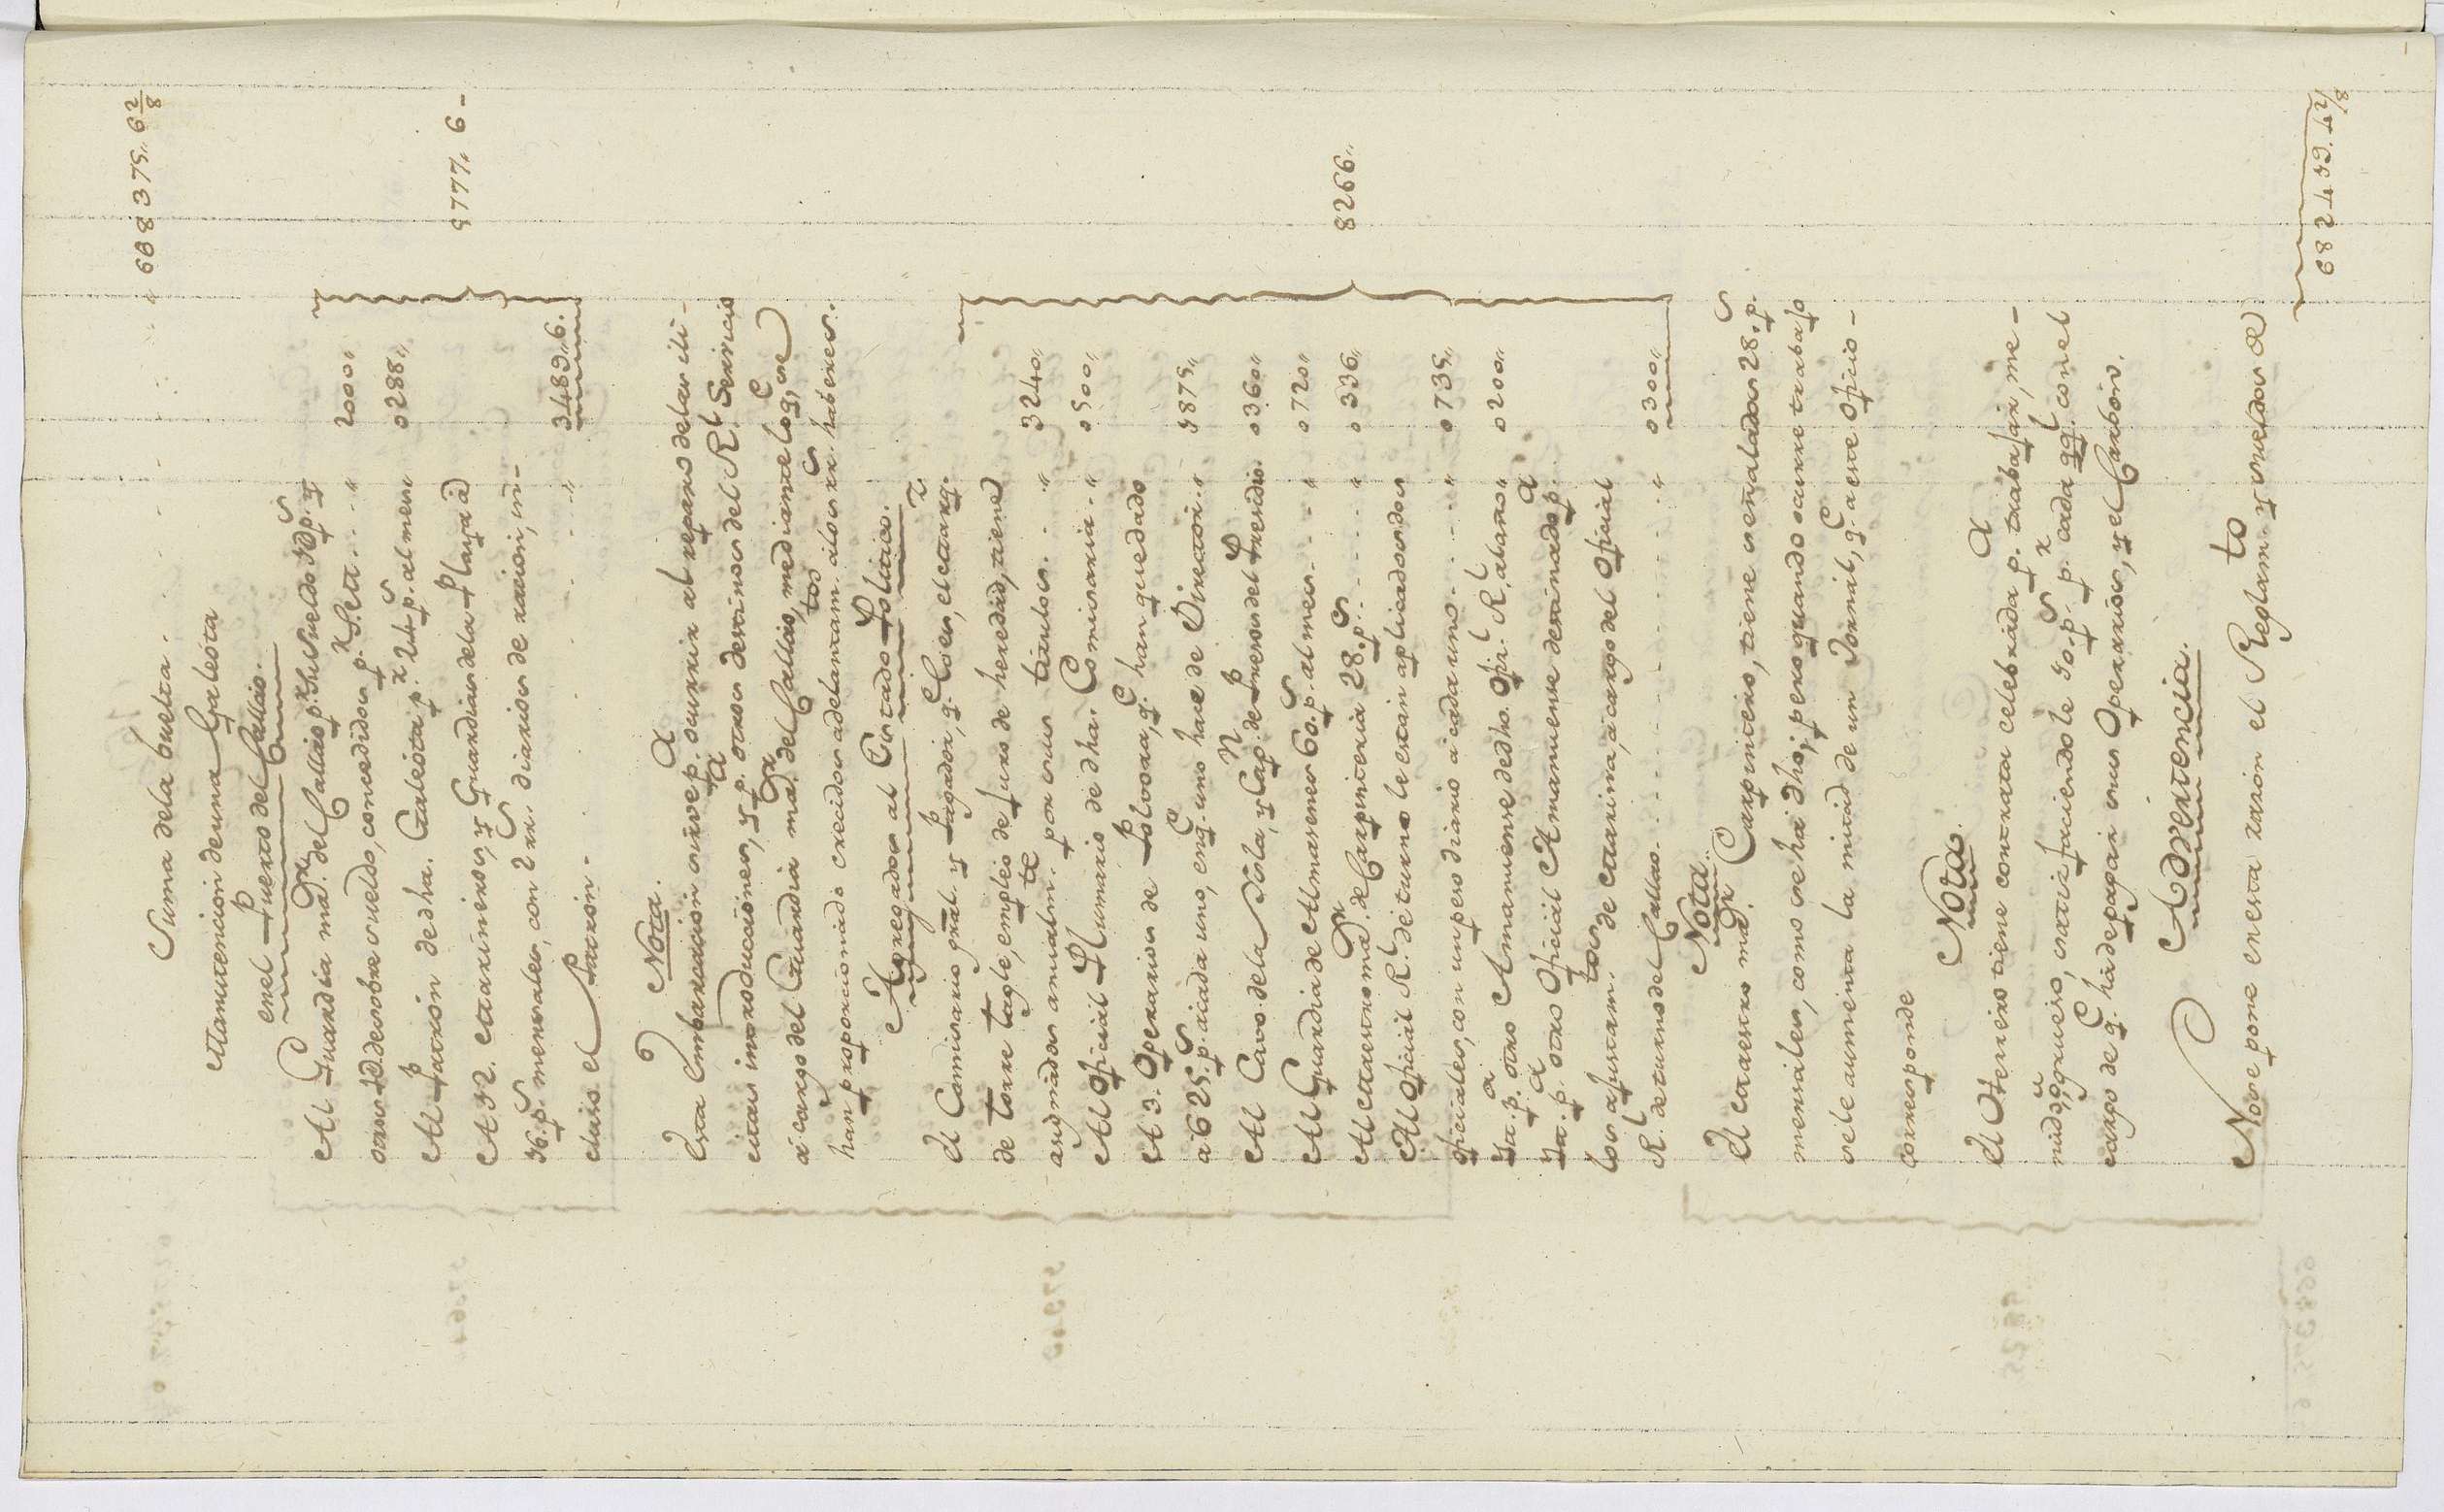 Suma dela buelta . . . . . . . . " 668375,, 6 2/8
Manutencion de una Galeota
en el Puerto del Callao.
Al Guardia ma.or del Callao p.r su sueldo 1Ɖ p.s y
otros 1Ɖ de sobre sueldo, concedidos p.r S. M. . . " 2000,,
Al Patrón de dha. Galeota p.r 24 p.s al mes " 0288,,
A 12. Marineros, y Guardias dela Playa à
16. p.s mensales, con 2 rr.s diarios de racion, in-
cluso el Patron . . . . . . " 3489,,6.
5777,, 6 -
Nota.
Esta Embarcacion sirve p.a ocurrir al reparo delas ili-
citas introducciones, y p.a otros destinos del R.l Servicio
à cargo del Guardia ma.or del Callao, mediante lo q.e, se
han proporcionado crecidos adelantam.tos alos rr.s haberes.
Agregados al Estado Politico.
El Comisario gràl. y Pagador, q.e lo es, el Marq.z
de Torre Tagle, empleo de juro de heredad, tiene
asignados anualm.te por sus titulos . . . " 3240,,
Al Oficial Plumario de dha. Comisaria . . " 0500,,
A 3. Operarios de Polvora, q.e han quedado
a 625. p.s acada uno, en q.e uno hace de Director . . " 1875,,
Al Cavo dela Isla, y Cap.n de Presos del Presidio. 0360,,
Al Guardia de Almacenes 60. p.s al mes . . . " 0720,,
Al Maestro ma.or de Carpinteria 28. p.s . . . . " 0336,,
Al Oficial R.l de turno le estan aplicados dos
oficiales, con un peso diario a cada uno . . . . " 0735,,
Ytt. p.a otro Amanuense de dho. Ofiz.l R.l, al año " 0200,,
Ytt. p.a otro Oficial Amanuense destinado p.a
los ajustam.tos de Marina, a cargo del Oficial
R.l de turno del Callao . . . . . . . . " 0300,,
8266,,
Nota.
El Maestro ma.or Carpintero, tiene señalados 28. p.s
mensales, como se há dho; pero quando ocurre trabajo
se le aumenta la mitad de un Jornal, q.e a este oficio -
corresponde
Nota.
El Herrero tiene contrata celebrada p.a trabajar, me-
nudo, ò grueso, satisfaciendole 10. p.s p.r cada qq.l con el
cargo de q.e há de pagar sus Operarios, y el Carbon.
Advertencia.
No se pone en esta razon el Reglam.to y sueldos de
682419.. 4 2/8